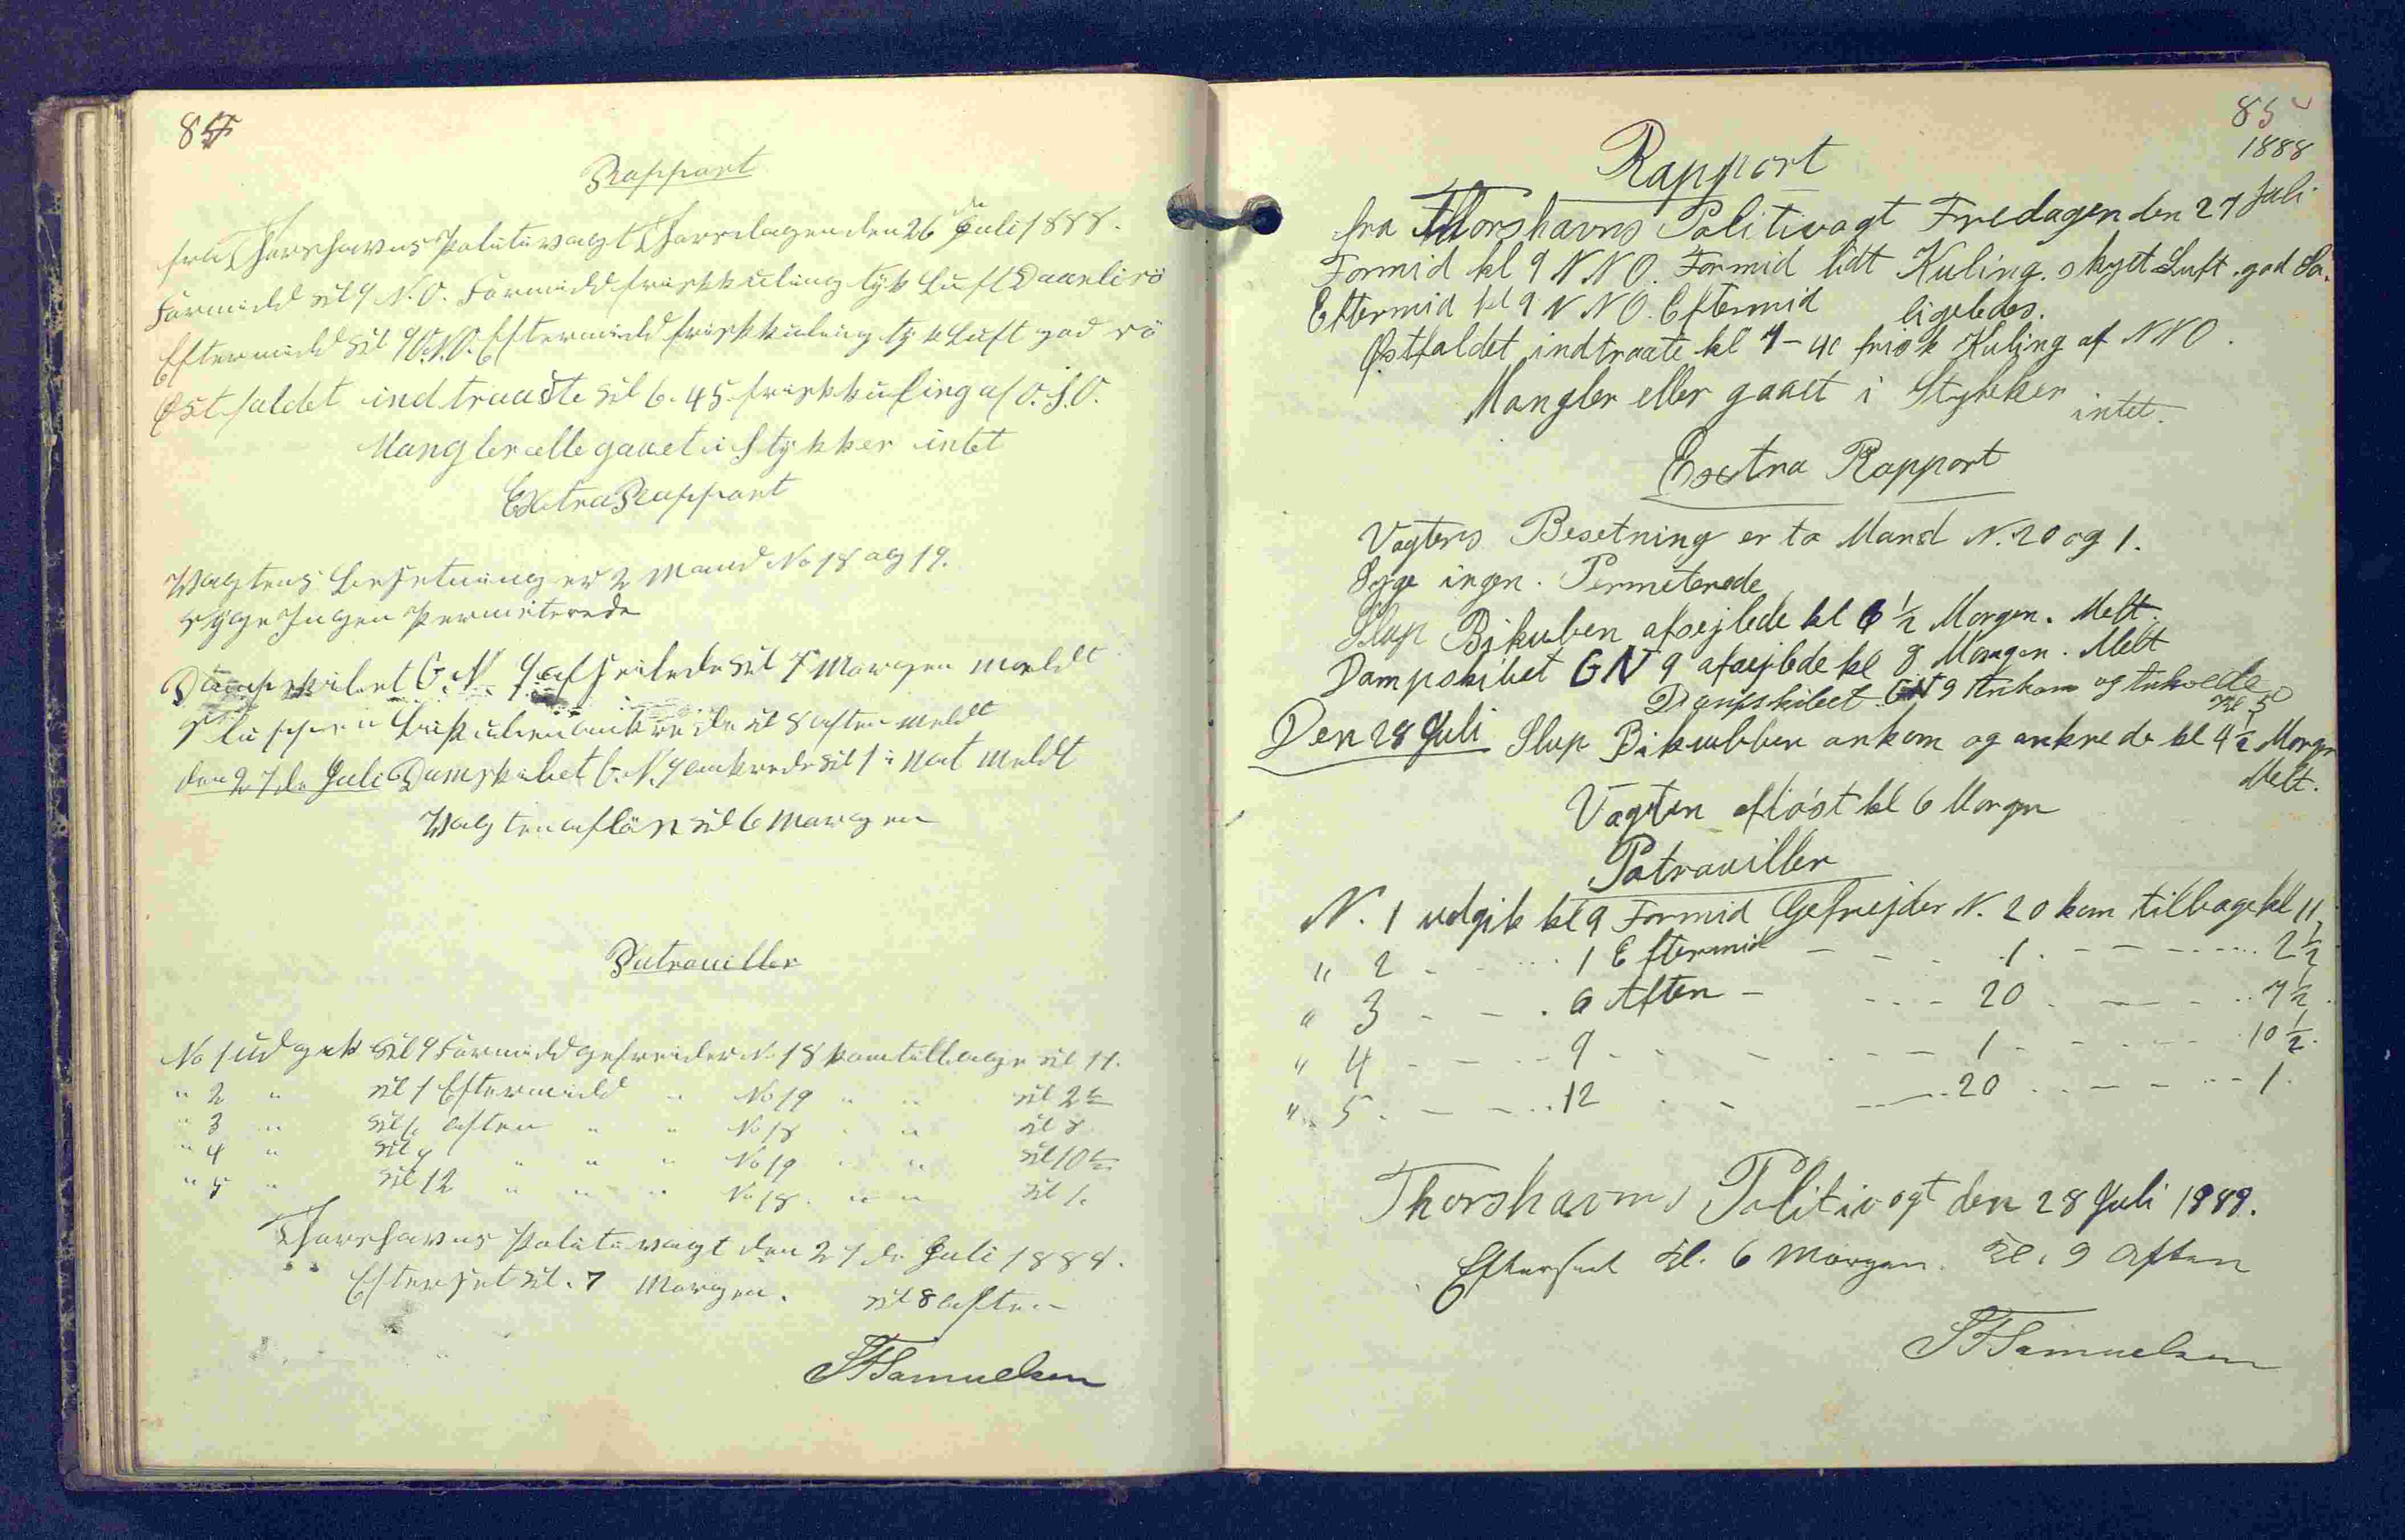 84
Rapport
fra Thorshavns Politivagt Thorsdagen den 26 de Juli 1888.
Formidd Kl 9 N.O. Formidd frisk kuling tyk Luft Daarli sö
Eftermidd Kl 9 O.N.O. Eftermidd frisk kuling tyk Luft god sö
Østfaldet indtraadte Kl 6.45 frisk kuling af O.S.O.
Mangler elle gaaet i Stykker intet
Extra Rapport
Wagtens Besetning er 2 Mand No 18 og 19.
Syge Ingen Permiterede
Dampskibet G.N. 9 afseilede Kl 7 Morgen meldt
Sluppen Bikuben ankrede Kl 8 Aften meldt
den 27 de Juli Damskibet G.N. 9 ankrede Kl 1 i Nat meldt
Wagten aflöst Kl 6 Morgen
Patrouiller
No 1 udgik Kl 9 Formidd gefreider N. 18 kom tilbage Kl 11.
" 2 " Kl 1 Eftermidd " No 19 " " Kl 2 ½
" 3 " Kl 6 Aften " " No 18 " " Kl 8
" 4 " Kl 9 " " " No 19 " " Kl 10 ½
" 5 " Kl 12 " " " No 18 " " Kl 1.
Thorshavns Politivagt den 27 de Juli 1888.
Efterset Kl. 7 Morgen. Kl 8 Aften
Samuelsen
85
1888
Rapport
fra Thorshavns Politivagt Fredagen den 27 Juli
Formid kl 9 N N O. Formid lidt Kuling. skyet Luft. god Sø.
Eftermid kl 9 N NO. Eftermid ligeledes.
Østfaldet indtraate kl 7-40 frisk Kuling af NNO.
Mangler eller gaaet i Stykker intet.
Extra Rapport
Vagtens Besetning er to Mand N. 20 og 1.
Syge ingen. Permiterede
Slup Bikuben afsejlede kl 6 ½ Morgen. Melt.
Dampskibet GN 9 afsejlede kl 8 Morgen. Melt
Dampskibet GN 9 Ankom og Ankrede Kl 5
Den 28 Juli Slup Bikubben ankom og ankrede kl 4 ½ Morgn
Melt.
Vagten afløst kl 6 Morgn
Patrouiller
N. 1 udgik kl 9 Formid Gefrejder N. 20 kom tilbage kl 11
" 2 - - - 1 Eftermid - - - 1 - - - - 2 ½
" 3 - - - 6 Aften - - - - 20 - - - - 7 ½.
" 4 - - - 9 - - - - - 1 - - - - 10 ½.
" 5 - - - 12 - - - 20 - - - - 1.
Thorshavns Politivagt den 28 Juli 1888.
Efterset Kl. 6 Morgen. Kl. 9 Aften
Samuelsen